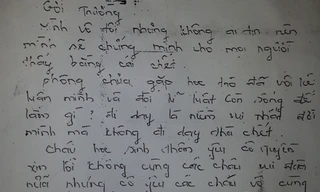 Gởi Trường
Mình vô tội nhưng không ai tin nên
mình sẽ chứng minh cho mọi người
thấy bằng cái chết.
phòng chưa gặp học trò đã vội kết
luận mình và đòi kỉ luật còn sống để
làm gì? đi dạy là niềm vui nhất đời
mình mà không đi dạy thà chết.
Cháu học sinh thân yêu cô Tuyền
xin lỗi không cùng các cháu vui đùa
nữa nhưng cô yêu các cháu vô cùng